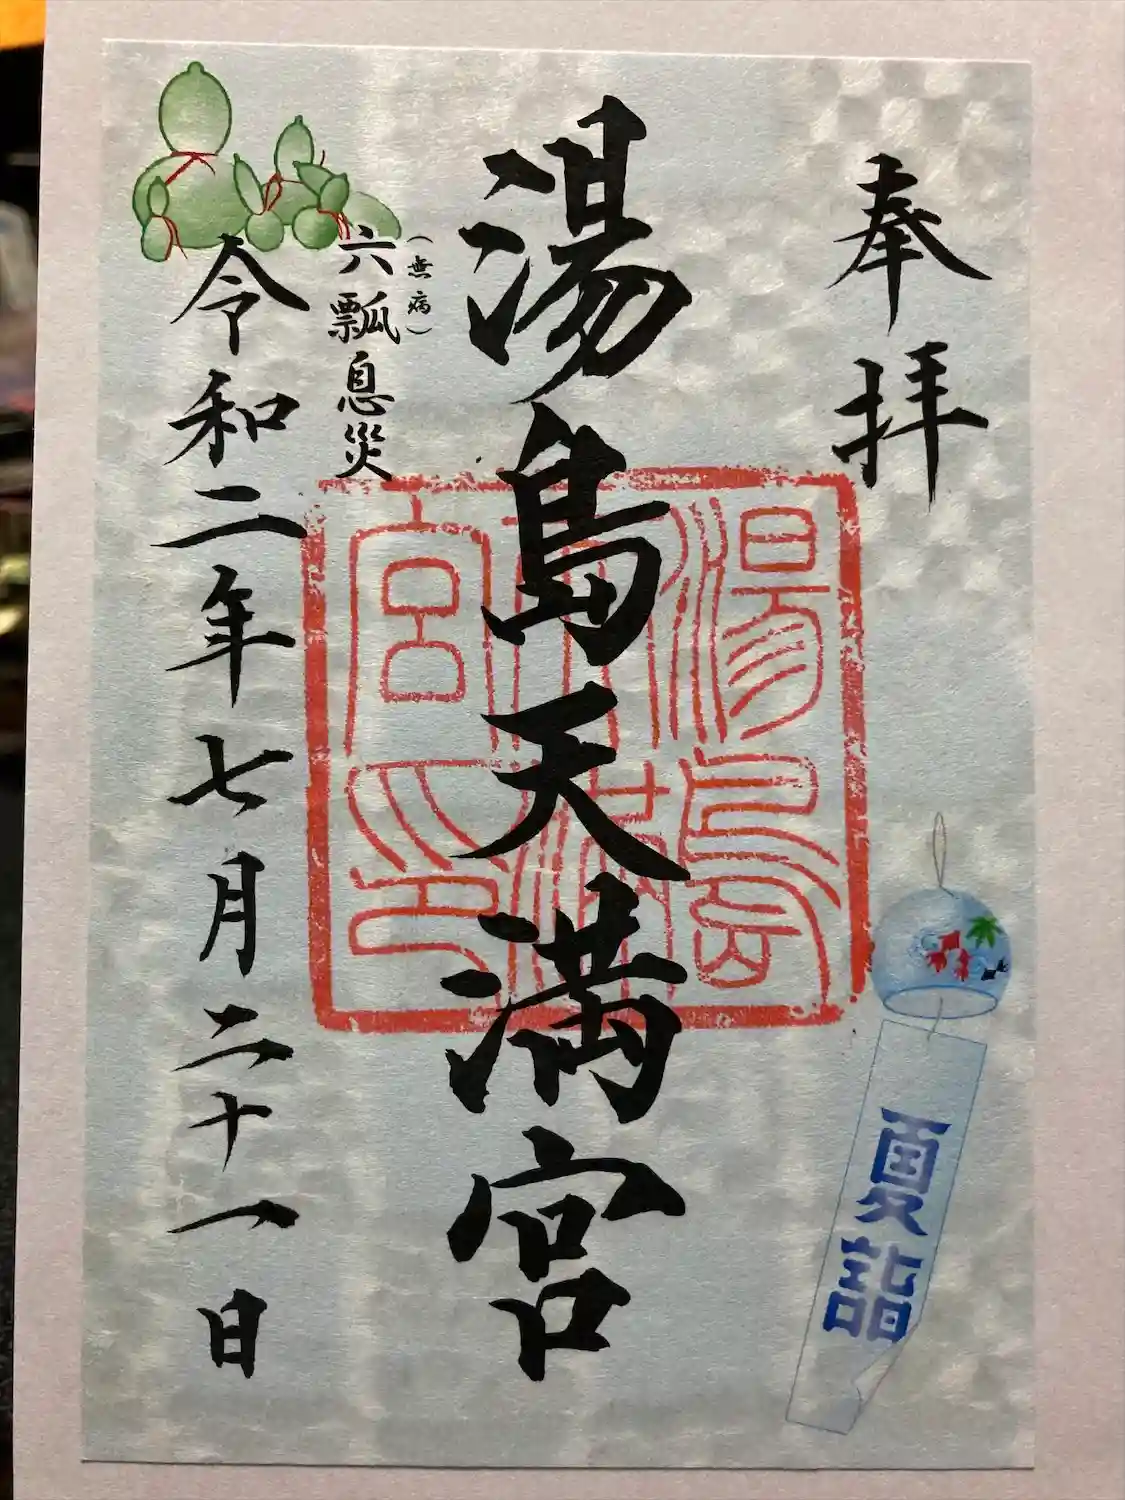 奉拝
夏詣
湯島天満宮
湯島天満宮印
(無病)
六瓢息災
令和二年七月二十一日